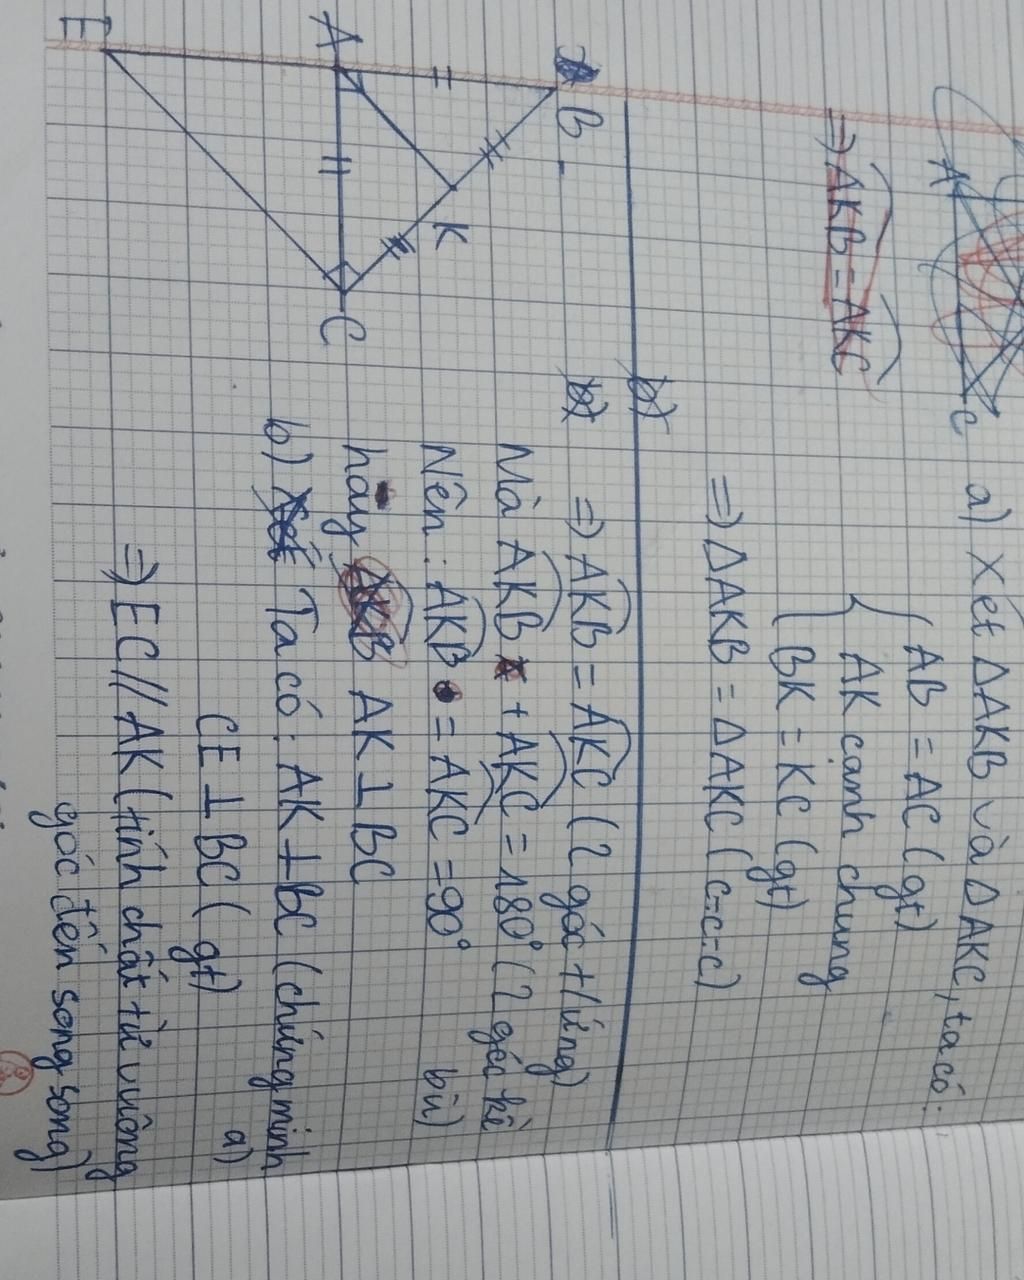 A
C
a) Xét ΔAKB và ΔAKC, ta có:
AB = AC (gt)
AK cạnh chung
BK = KC (gt)
⇒ AKB = AKC
⇒ ΔAKB = ΔAKC (c-c-c)
b)
⇒ AKB = AKC (2 góc t/ứng)
Mà AKB + AKC = 180° (2 góc kề
bù)
Nên: AKB = AKC = 90°
hay AKB AK ⊥ BC
b) Ta có: AK ⊥ BC (chứng minh
a)
CE ⊥ BC (gt)
⇒ EC // AK (tính chất từ vuông
góc đến song song)
B
A
K
C
E